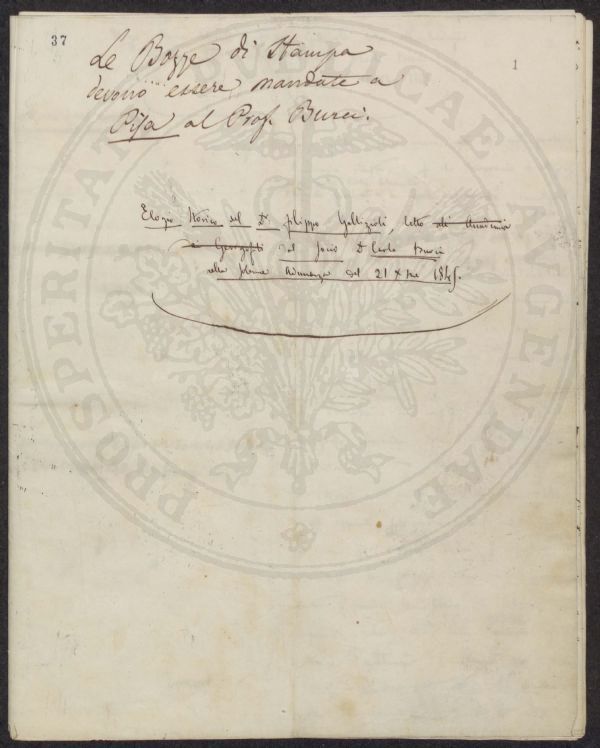 37
1
Le Bozze di Stampa
devono essere mandate a
Pisa al Prof. Burci.
Elogio Storico del Dr. Filippo Gallizioli, letto all' Accademia
dei Georgofili dal socio Dr. Carlo Burci
alla solenne Adunanza del 21 Xbre 1845.
PROSPERITATI PUBLICAE AUGENDAE